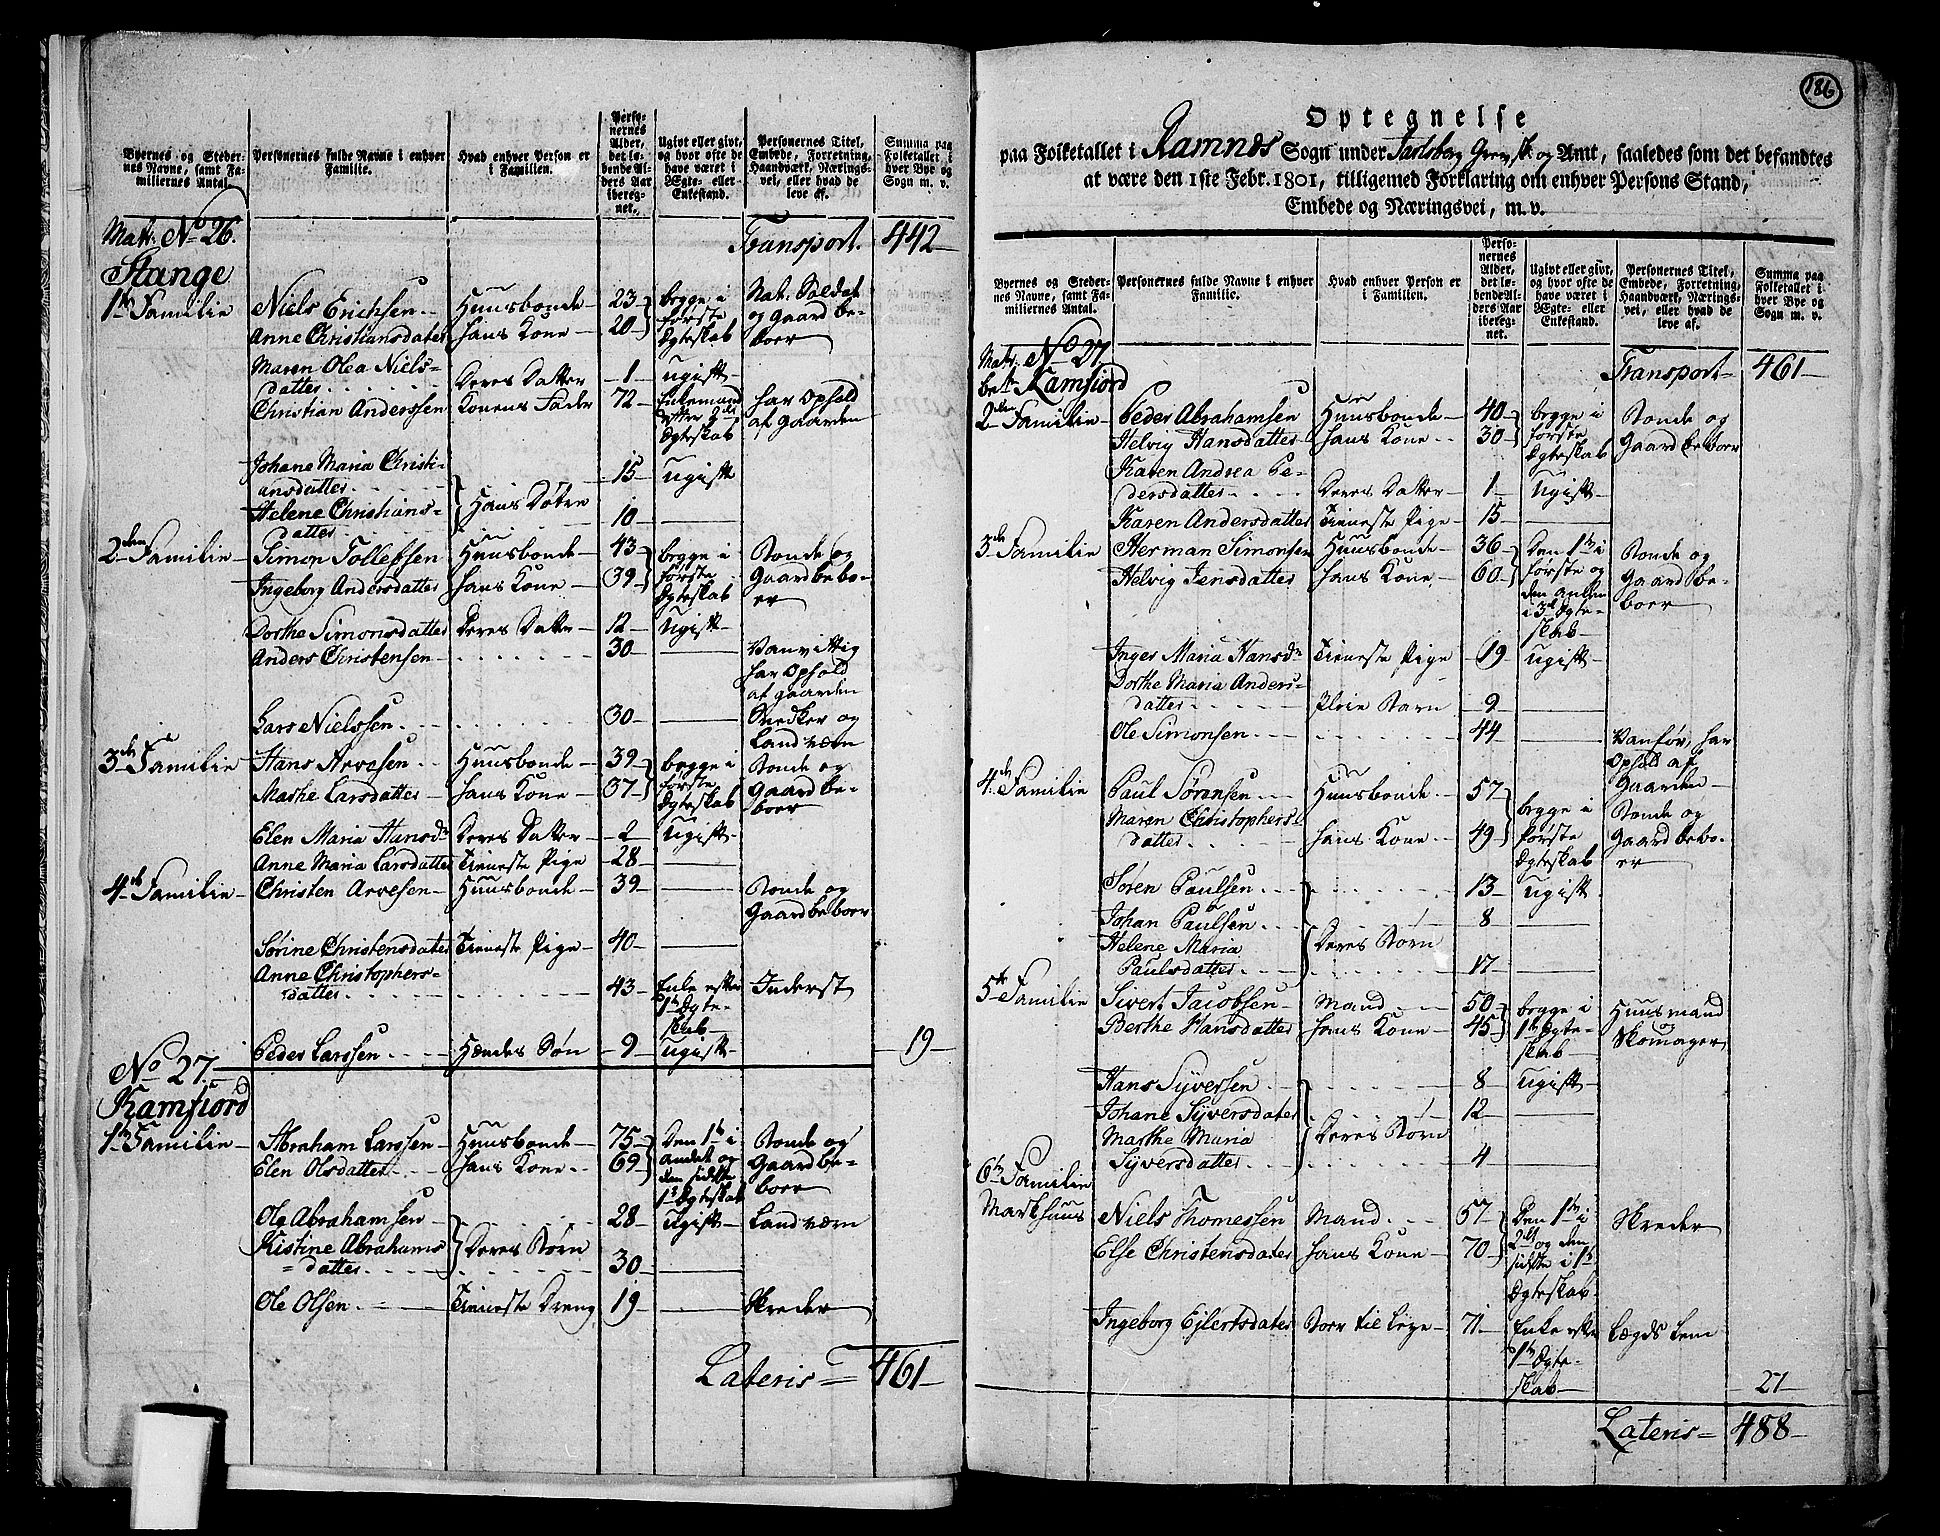 Byernes og Stedernes Navne, samt Familiernes Antal.
Personernes fulde Navne i enhver Familie.
Hvad enhver Person er i Familien.
Personernes Alder, det løbende Alders Aar iberegnet.
Ugivt eller givt, og hvor ofte de have været i Ægte- eller Enkestand.
Personernes Titel, Embede, Forretning, Haandværk, Næringsvei, eller hvad de leve af.
Summa paa Folketallet i hver Bye og Sogn m. v.
Matr. No 26. Transport. 442
Stange
1te Familie Niels Erichsen Huusbonde 23 begge i første Ægteskab Nat. Soldat og Gaardbeboer
Anne Christiansdatter hans Kone 20
Maren Olea Nielsdatter Deres Datter 1 ugift
Christian Anderssen Konens Fader 72 Enkemand efter 2det Ægteskab har Ophold af gaarden
Johane Maria Christiansdatter Hans Døtre 15 Ugift
Helene Christiansdatter 10
2den Familie Simon Tollefsen Huusbonde 43 begge i første Ægteskab Bonde og Gaardbeboer
Ingeborg Andersdatter hans Kone 39
Dorthe Simonsdatter Deres Datter 12 Ugift
Anders Christensen 30 Vanvittig har Ophold af gaarden
Lars Nielssen 30 Snedker og Landværn
3de Familie Hans Arvesen Huusbonde 39 begge i første Ægteskab Bonde og Gaardbeboer
Marthe Larsdatter hans Kone 37
Elen Maria Hansdr Deres Datter 2 Ugift
Anne Maria Larsdatter Tieneste Pige 28
4de Familie Christen Arvesen Huusbonde 39 Bonde og Gaardbeboer
Sørine Christensdatter Tieneste Pige 40
Anne Christophersdatter 43 Enke efter 1te Ægteskab Inderst
Peder Larssen Hendes Søn 9 ugift 19
No 27.
Kamfiord
1te Familie Abraham Larssen Huusbonde 75 Den 1te i andet og den sidste 1te Ægteskab Bonde og Gaardbeboer
Elen Olsdatter hans Kone 69
Ole Abrahamsen Deres Børn 28 Ugift Landværn
Kistine Abrahamsdatter 30
Ole Olsen Tieneste Dreng 19 Skreder
Lateris 461
186
Optegnelse
paa Folketallet i Ramnæs Sogn under Jarlsberg Grevsk. og Amt, saaledes som det befandtes
at være den 1ste Febr. 1801, tilligemed Forklaring om enhver Persons Stand,
Embede og Næringsvei, m. v.
Byernes og Stedernes Navne, samt Familiernes Antal.
Personernes fulde Navne i enhver Familie.
Hvad enhver Person er i Familien.
Personernes Alder, det løbende Alders Aar iberegnet.
Ugivt eller givt, og hvor ofte de have været i Ægte- eller Enkestand.
Personernes Titel, Embede, Forretning, Haandværk, Næringsvei, eller hvad de leve af.
Summa paa Folketallet i hver Bye og Sogn m. v.
Matr. No 27 Transport 461
Kamfiord
2den Familie Peder Abrahamsen Huusbonde 40 begge i første Ægteskab Bonde og Gaardbeboer
Helvig Hansdatter hans Kone 30
Karen Andrea Pedersdatter Deres Datter 1 Ugift
Karen Andersdatter Tieneste Pige 15
3de Familie Herman Simonsen Huusbonde 36 Den 1te i første og den anden i 3de Ægteskab Bonde og Gaardbeboer
Helvig Jensdatter hans Kone 60
Inger Maria Hansdr Tieneste Pige 19 ugift
Dorthe Maria Andersdatter Pleie Barn 9
Ole Simonsen 44 Vanfør, har Ophold af Gaarden
4de Familie Paul Sørensen Huusbonde 57 begge i første Ægteskab Bonde og Gaardbeboer
Maren Christophersdatter hans Kone 49
Søren Paulsen 13 ugift
Johan Paulsen Deres Børn 8
Helene Maria Paulsdatter 17
5te Familie Sivert Jacobsen Mand 50 begge i 1te Ægteskab Huusmand Skomager
Berthe Hansdatter hans Kone 45
Hans Syversen 8 ugift
Johane Syversdatter Deres Børn 12
Marthe Maria Syversdatter 4
6te Familie
Niels Thomessen Mand 57 Den 1te i 2det og den sidste i 1te Ægteskab Skreder
Else Christensdatter hans Kone 70
Ingeborg Ejlertsdatter Boer til Leje 71 Enke efter 1te Ægteskab Lægds Lem
27
Lateris 488